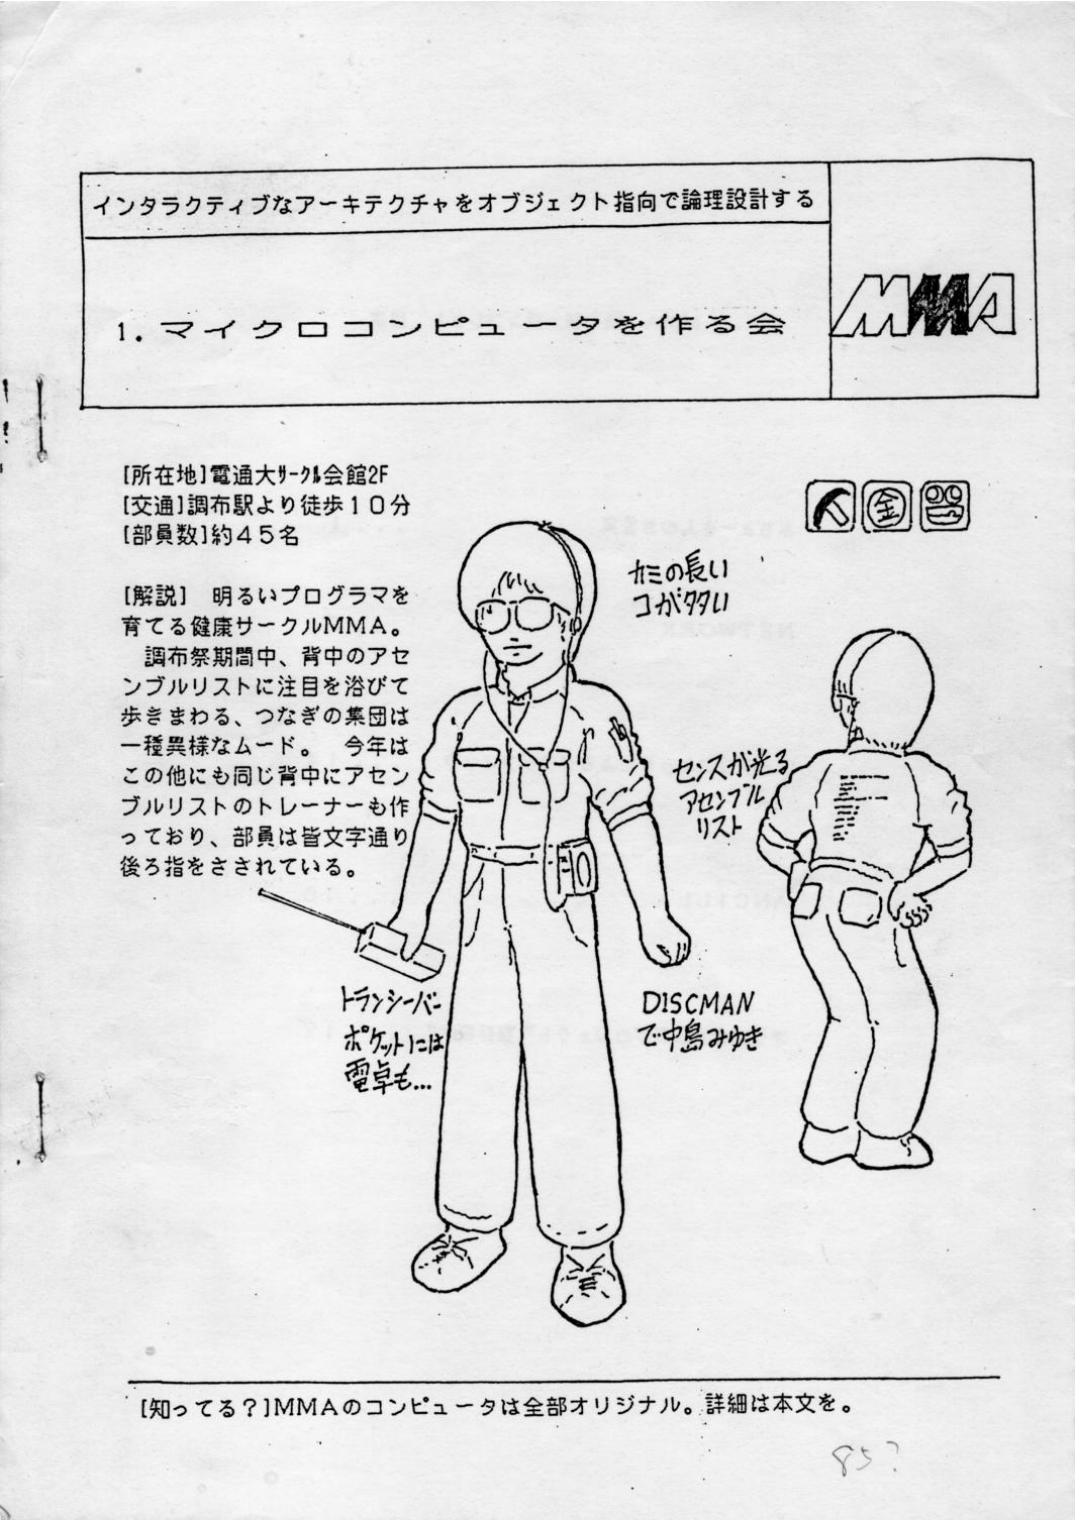 インタラクティブなアーキテクチャをオブジェクト指向で論理設計する
1. マイクロコンピュータを作る会
MMA
[所在地]電通大ｻｰｸﾙ会館2F
[交通]調布駅より徒歩10分
[部員数]約45名
金
カミの長い
コがタタい
[解説]　明るいプログラマを
育てる健康サークルMMA。
調布祭期間中、背中のアセ
ンブルリストに注目を浴びて
歩きまわる、つなぎの集団は
一種異様なムード。　今年は
この他にも同じ背中にアセン
ブルリストのトレーナーも作
っており、部員は皆文字通り
後ろ指をさされている。
センスが光る
アセンブル
リスト
トランシーバー
ポケットには
電卓も...
DISCMAN
で中島みゆき
[知ってる？]MMAのコンピュータは全部オリジナル。詳細は本文を。
85?